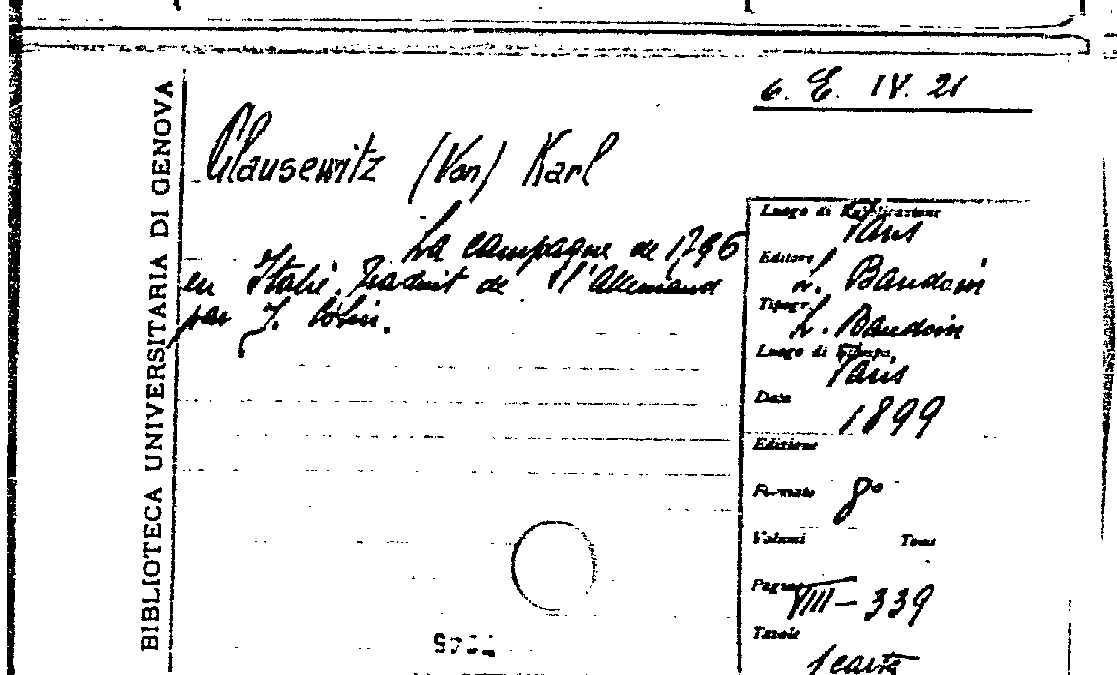 6. E. IV. 21
BIBLIOTECA UNIVERSITARIA DI GENOVA
Clausewitz (Von) Karl
La campagne de 1796
en Italie. Traduit de l'Allemand
par J. Colin.
Luogo di Pubblicazione
Paris
Editore L. Baudoin
Tipogr. L. Baudoin
Luogo di Stampa
Paris
Data 1899
Edizione
Formato 8°
Volumi Tomi
Pagine VIII-339
Tavole
1 carta